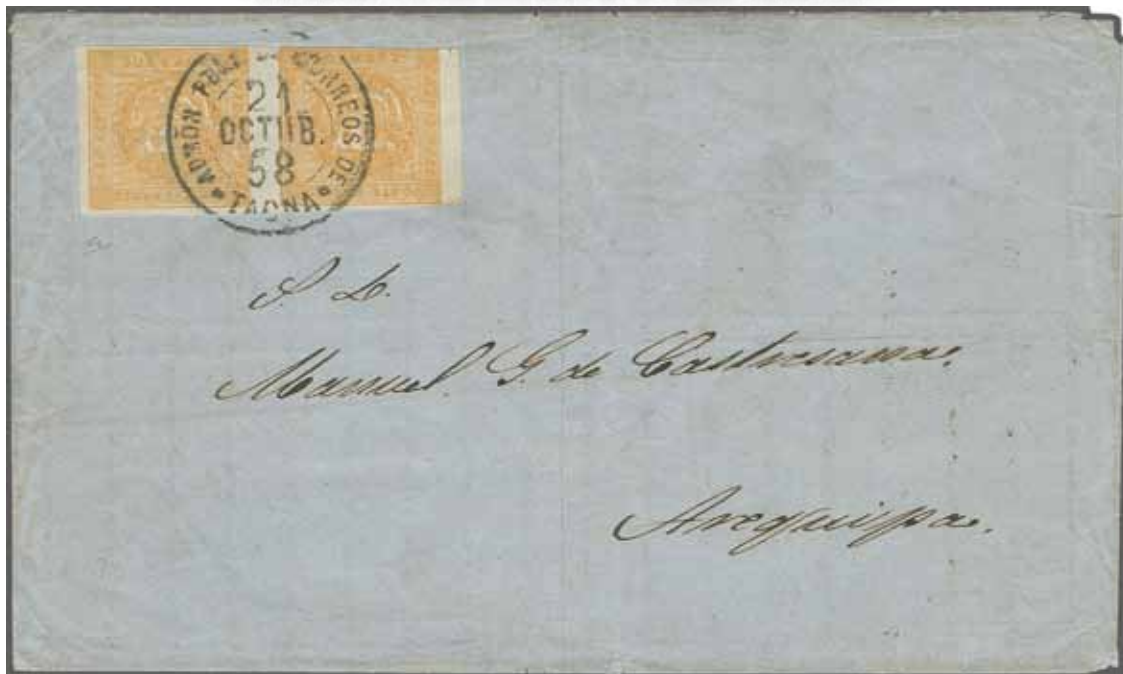 ADMÓN PRAL DE CORREOS DE
21
OCTUB.
68
TACNA
S. D.
Manuel G. de Castresana.
Arequipa.